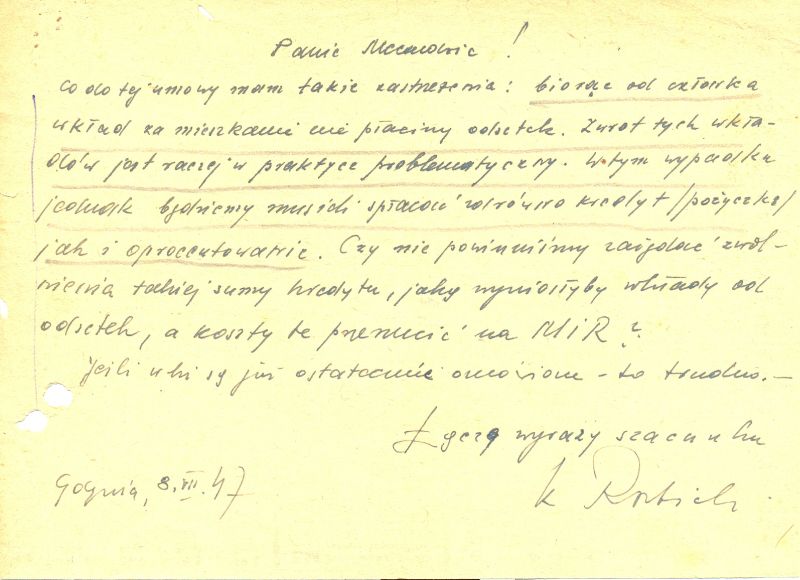 Panie Mecenasie!
Co do tej umowy mam takie zastrzeżenia: biorąc od członka
wkład za mieszkanie nie płacimy odsetek. Zwrot tych wkła-
dów jest raczej w praktyce problematyczny. W tym wypadku
jednak będziemy musieli spłacać zarówno kredyt /pożyczkę/
jak i oprocentowanie. Czy nie powinniśmy zażądać zwol-
nienia takiej sumy kredytu, jaką wyniosłyby wkłady od
odsetek, a koszty te przerzucić na MiR?
Jeśli są już ostatecznie omówione - to trudno. -
Łączę wyrazy szacunku
Gdynia, 8.VII.47
K